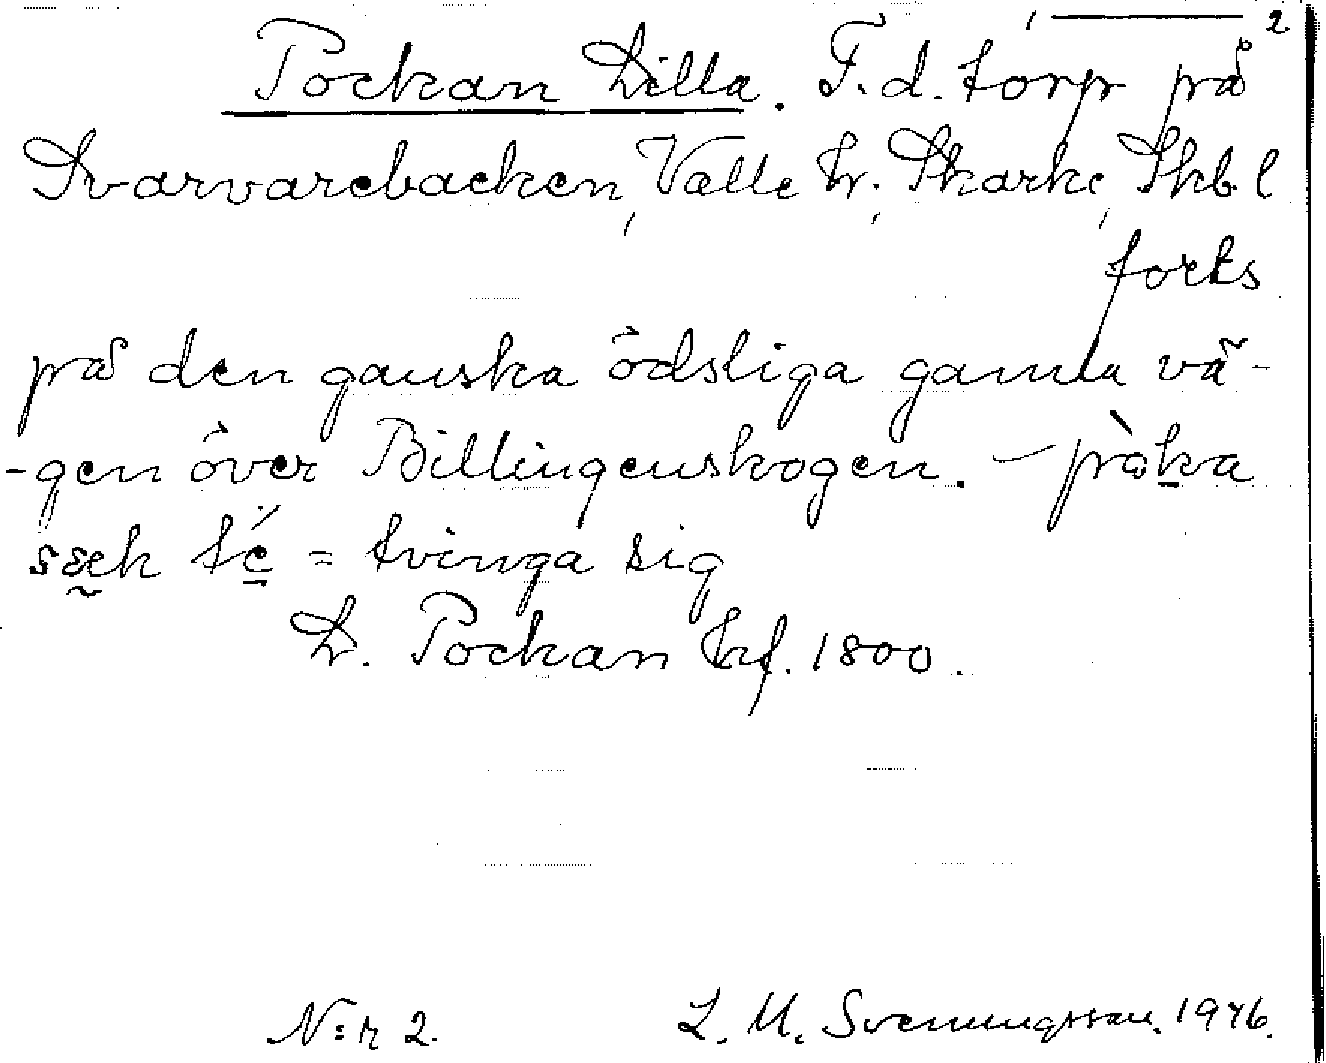 2
Pockan Lilla. F.d. torp på
Svarvarebacken, Valle hr, Skarke, Skb l
forts
på den ganska ödsliga gamla vä-
-gen över Billingenskogen. – pòka
sæk té = tvinga sig
L. Pockan Hfl. 1800.
N:r 2. L. M. Svenungsson. 1946.